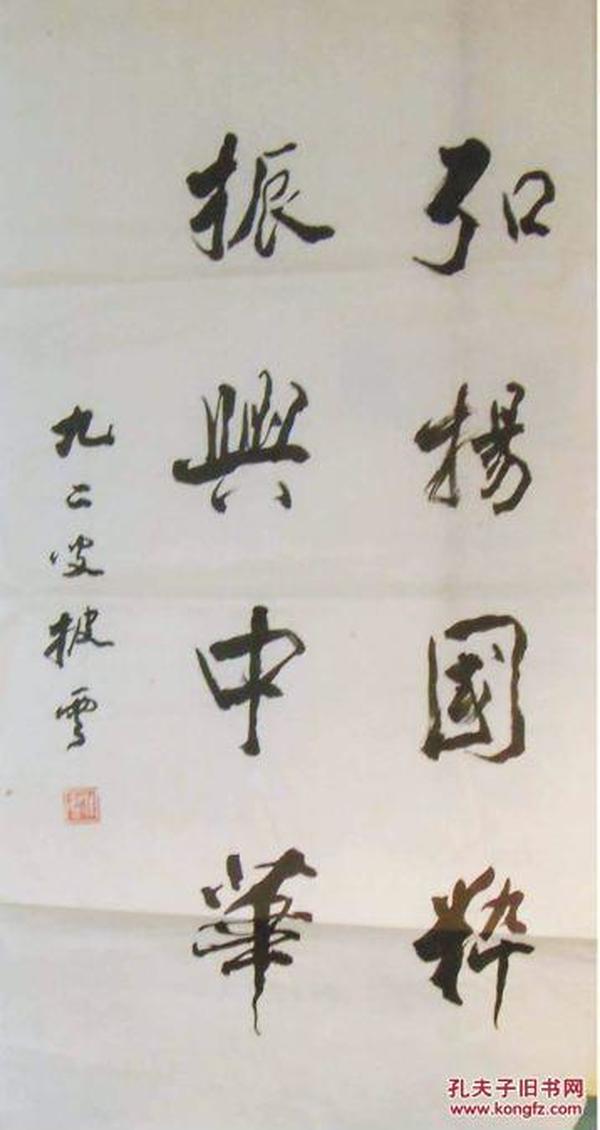 弘揚國粹
振興中華
九二叟披雲
孔夫子旧书网
www.kongfz.com